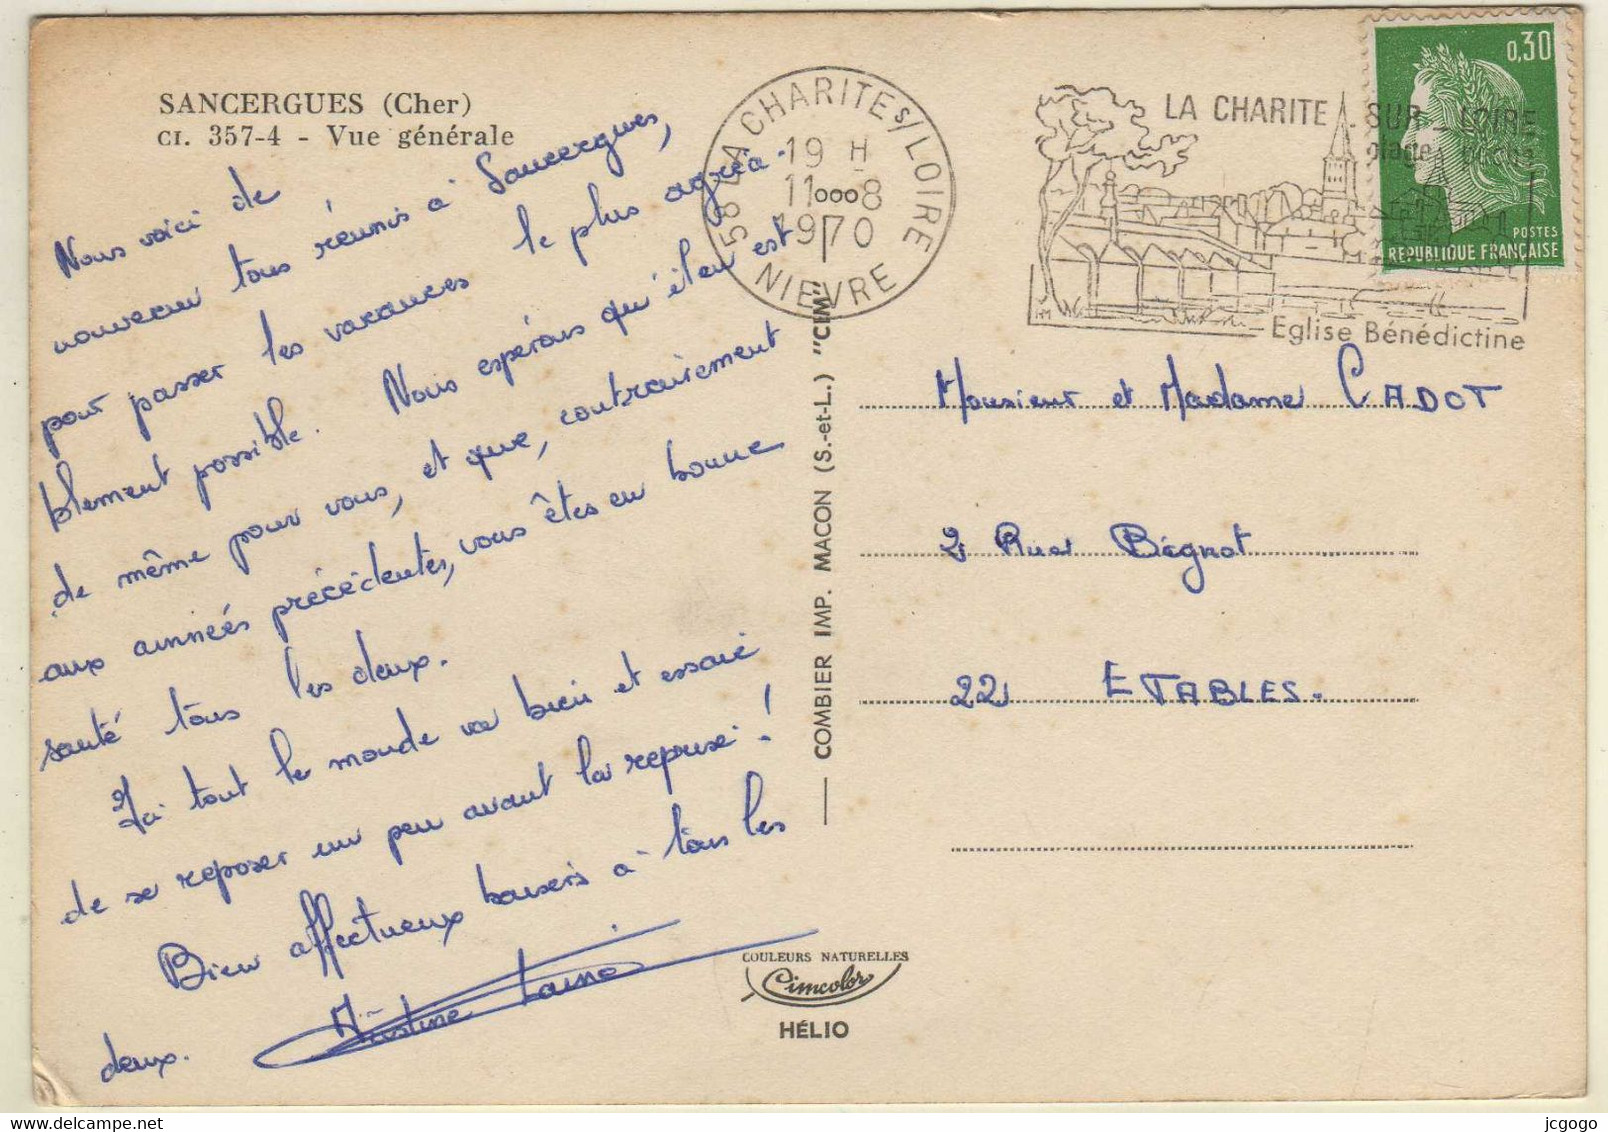 SANCERGUES (Cher)
CI. 357-4 - Vue générale
Nous voici de
nouveau tous réunis à Sancergues,
pour passer les vacances le plus agréa-
blement possible. Nous espérons qu'il en est
de même pour vous, et que, contrairement
aux années précédentes, vous êtes en bonne
santé tous les deux.
Ici tout le monde va bien et essaie
de se reposer un peu avant la reprise !
Bien affectueux baisers à tous les
deux.
COMBIER IMP. MACON (S.-et-L.) "CIM"
COULEURS NATURELLES
Cimcolor
HÉLIO
58 LA CHARITE S/LOIRE
19 H
11 8
1970
NIEVRE
LA CHARITE SUR LOIRE
plage
Eglise Bénédictine
0,30
POSTES
REPUBLIQUE FRANÇAISE
Monsieur et Madame CADOT
2 Rue Bégnot
22 ETABLES.